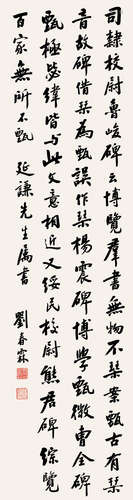 司隸校尉魯峻碑云博覽羣書無物不栞案甄古有栞
音故碑借栞為甄誤作栞楊震碑博學甄微曹全碑
甄極毖緯皆与此文意相近又綏民校尉熊君碑綜覽
百家無所不甄 延謙先生属書 劉春霖